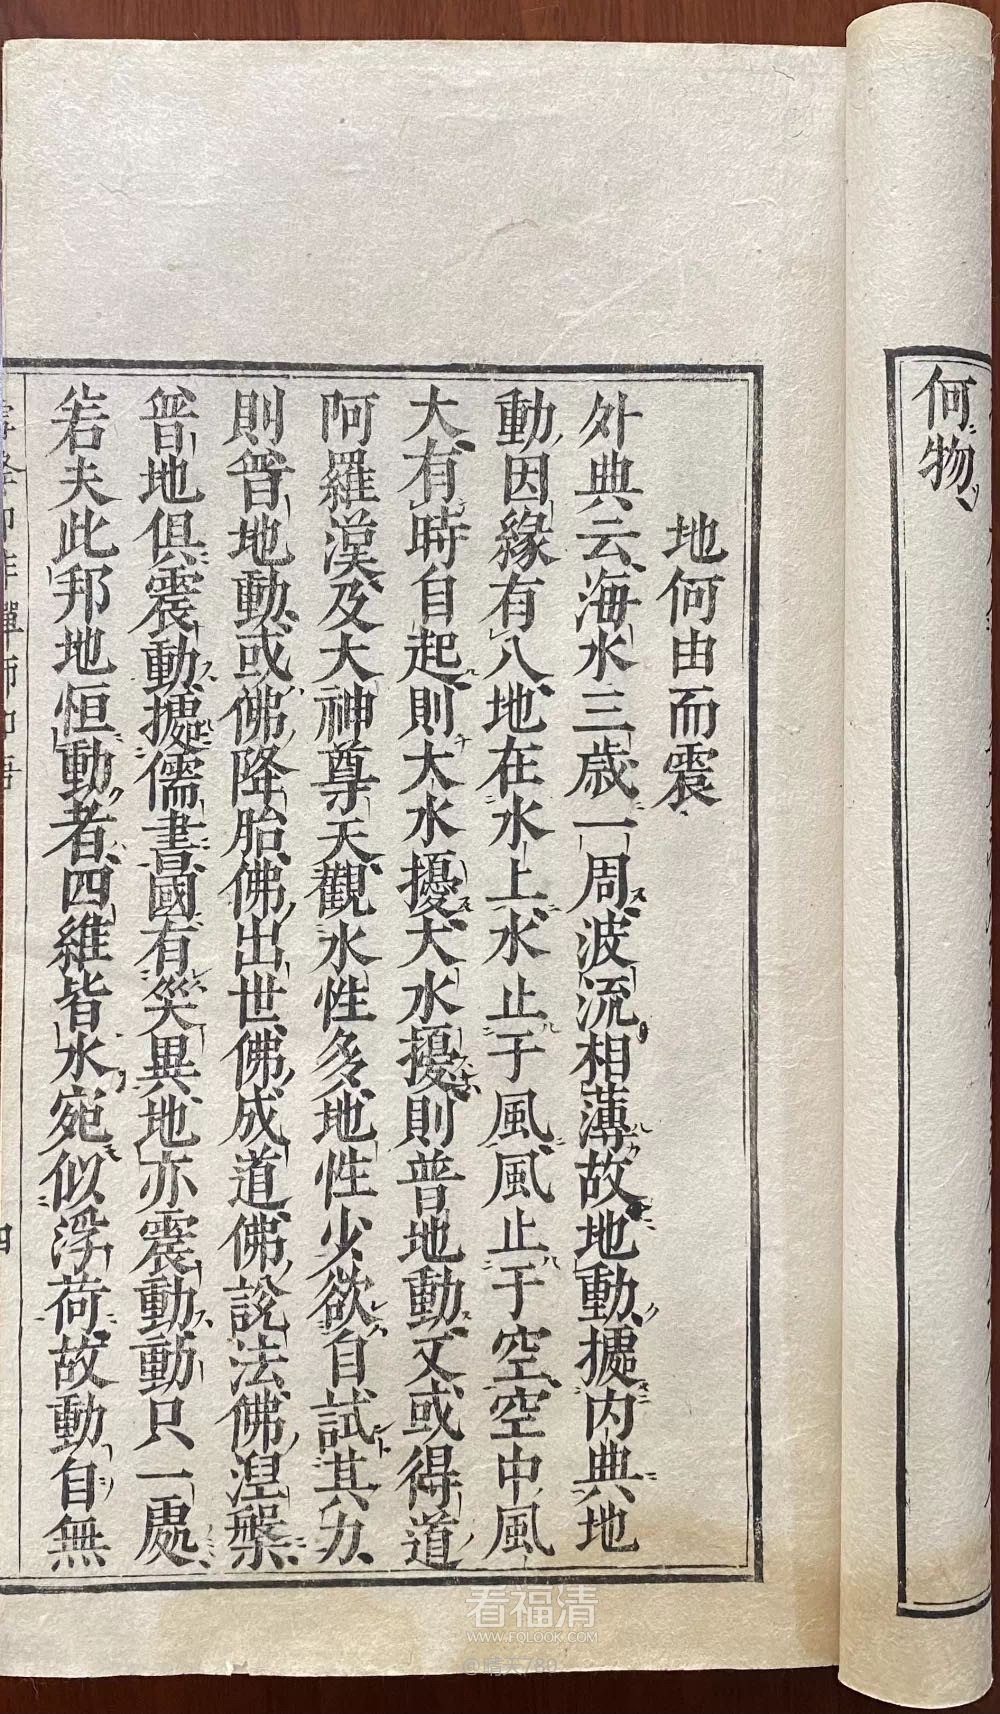 何物
地何由而震
外典云海水三歲一周波流相薄故地動據內典地
動因緣有八地在水上水止于風風止于空空中風
大有時自起則大水擾大水擾則普地動又或得道
阿羅漢及大神尊天觀水性多地性少欲自試其力
則普地動或佛降胎佛出世佛成道佛說法佛涅槃
普地俱震動據儒書國有災異地亦震動動只一處
若夫此邦地恒動者四維皆水宛似浮荷故動自無
四
看福清
WWW.FQLOOK.COM
@晴天789